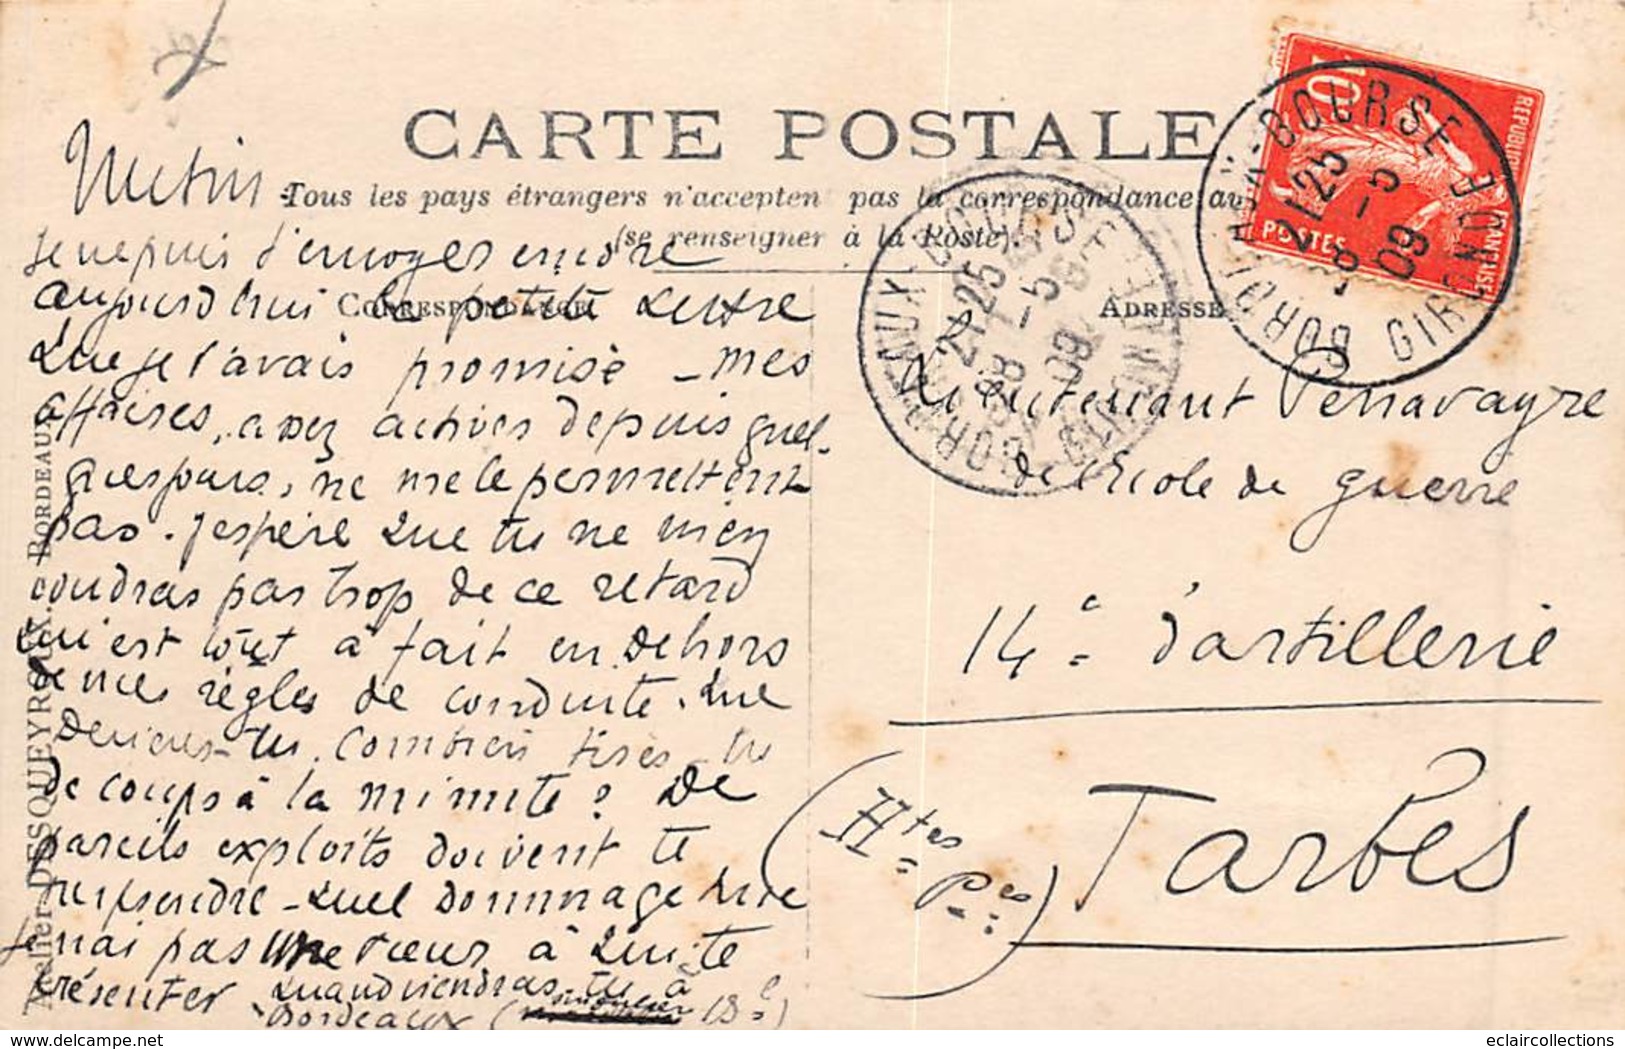 CARTE POSTALE
Tous les pays étrangers n'acceptent pas la correspondance au
(se renseigner à la Poste).
CORRESPONDANCE
ADRESSE
Je ne puis t'envoyer encore
aujourd'hui la petite lettre
que je t'avais promise - mes
affaires, assez actives depuis quel-
ques jours, ne me le permettent
pas. J'espère que tu ne m'en
voudras pas trop de ce retard
qui est tout à fait en dehors
de mes règles de conduite. Que
deviens-tu. Combien tires-tu
de coups à la minute? De
pareils exploits doivent te
surprendre - quel dommage que
je n'ai pas une sœur à qui te
présenter quand viendras tu à
Bordeaux ( 18e)
Lieutenant Penavayre
de l'école de guerre
14e d'artillerie
Tarbes
(Htes Pees)
Atelier DESQUEYROUX. - BORDEAUX
10
REPUBLIQUE FRANÇAISE
POSTES
BORDEAUX-BOURSE
GIRONDE
21 25
8 - 5
09
BORDEAUX-BOURSE
GIRONDE
21 25
8 - 5
09
eclaircollections